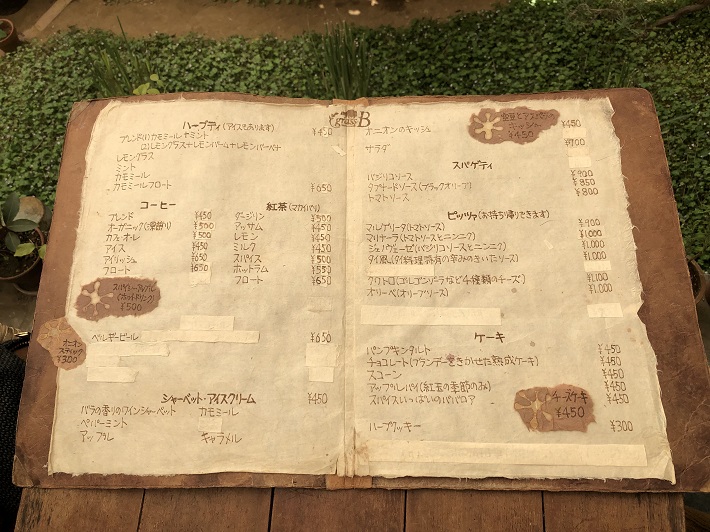 ハーブティ(アイスもあります) ¥450
ブレンド(1)カモミール+ミント
(2)レモングラス+レモンバーム+レモンバーベナ
レモングラス
ミント
カモミール
カモミールフロート ¥650
コーヒー
ブレンド ¥450
オーガニック(深煎り) ¥500
カフェ・オ・レ ¥500
アイス ¥450
アイリッシュ ¥650
フロート ¥650
¥500
紅茶(マカイバリ)
ダージリン ¥500
アッサム ¥450
レモン ¥450
ミルク ¥450
スパイス ¥500
ホットラム ¥550
フロート ¥650
ベルギービール ¥650
オニオン
スティック
¥300
シャーベット・アイスクリーム ¥450
バラの香りのワインシャーベット カモミール
ペパーミント
アップル キャラメル
grass B
オニオンのキッシュ
¥450
¥450
サラダ ¥700
スパゲティ
バジリコソース ¥900
タプナードソース(ブラックオリーブ) ¥850
トマトソース ¥800
ピッツァ(お持ち帰りできます)
マルゲリータ(トマトソース) ¥900
マリナーラ(トマトソースとニンニク) ¥1,000
ジェノヴェーゼ(バジリコソースとニンニク) ¥1,000
タイ風(タイ料理特有の辛みのきいたソース) ¥1,000
クワトロ(ゴルゴンゾーラなど4種類のチーズ) ¥1,100
オリーベ(オリーブソース) ¥1,000
ケーキ
パンプキンタルト ¥450
チョコレート(ブランデーをきかせた熟成ケーキ) ¥450
スコーン ¥450
アップルパイ(紅玉の季節のみ) ¥450
スパイスいっぱいのババロア ¥450
チーズケーキ
¥450
ハーブクッキー ¥300